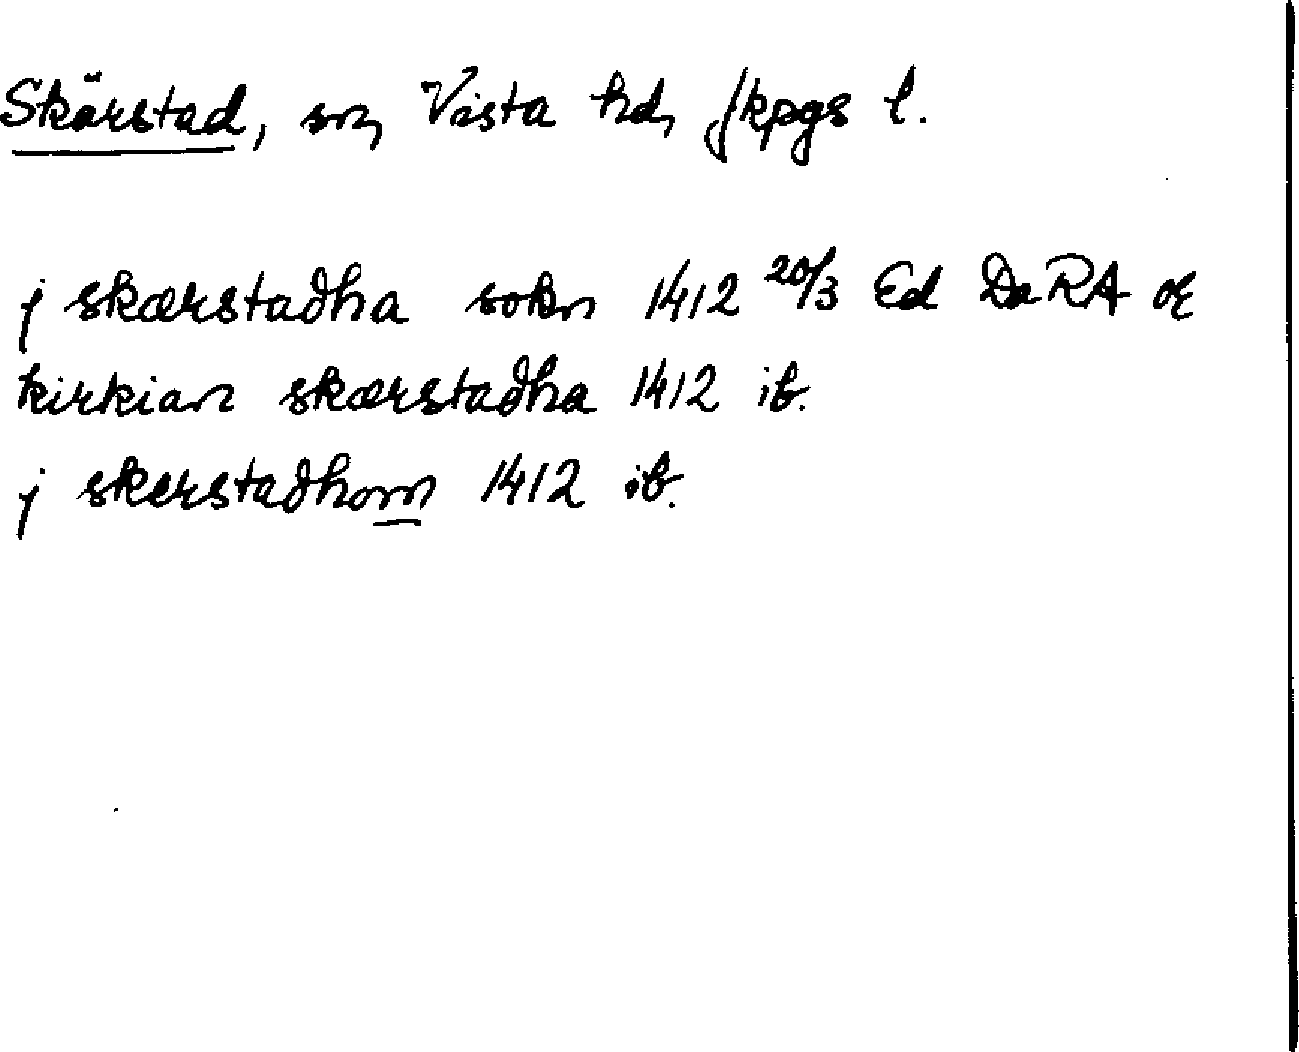 Skärstad, sn, Vista hd, Jkpgs l.
j skærstadha sokn 1412 20/3 Ed DaRA or
kirkian skærstadha 1412 ib.
j skerstadhom 1412 ib.